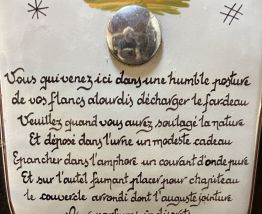 Vous qui venez ici dans une humble posture
de vos flancs alourdis décharger le fardeau
Veuillez quand vous aurez soulagé la nature
Et déposé dans l'urne un modeste cadeau
Epancher dans l'amphore un courant d'onde pure
Et sur l'autel fumant placer pour chapiteau
le couvercle arrondi dont l'auguste jointure